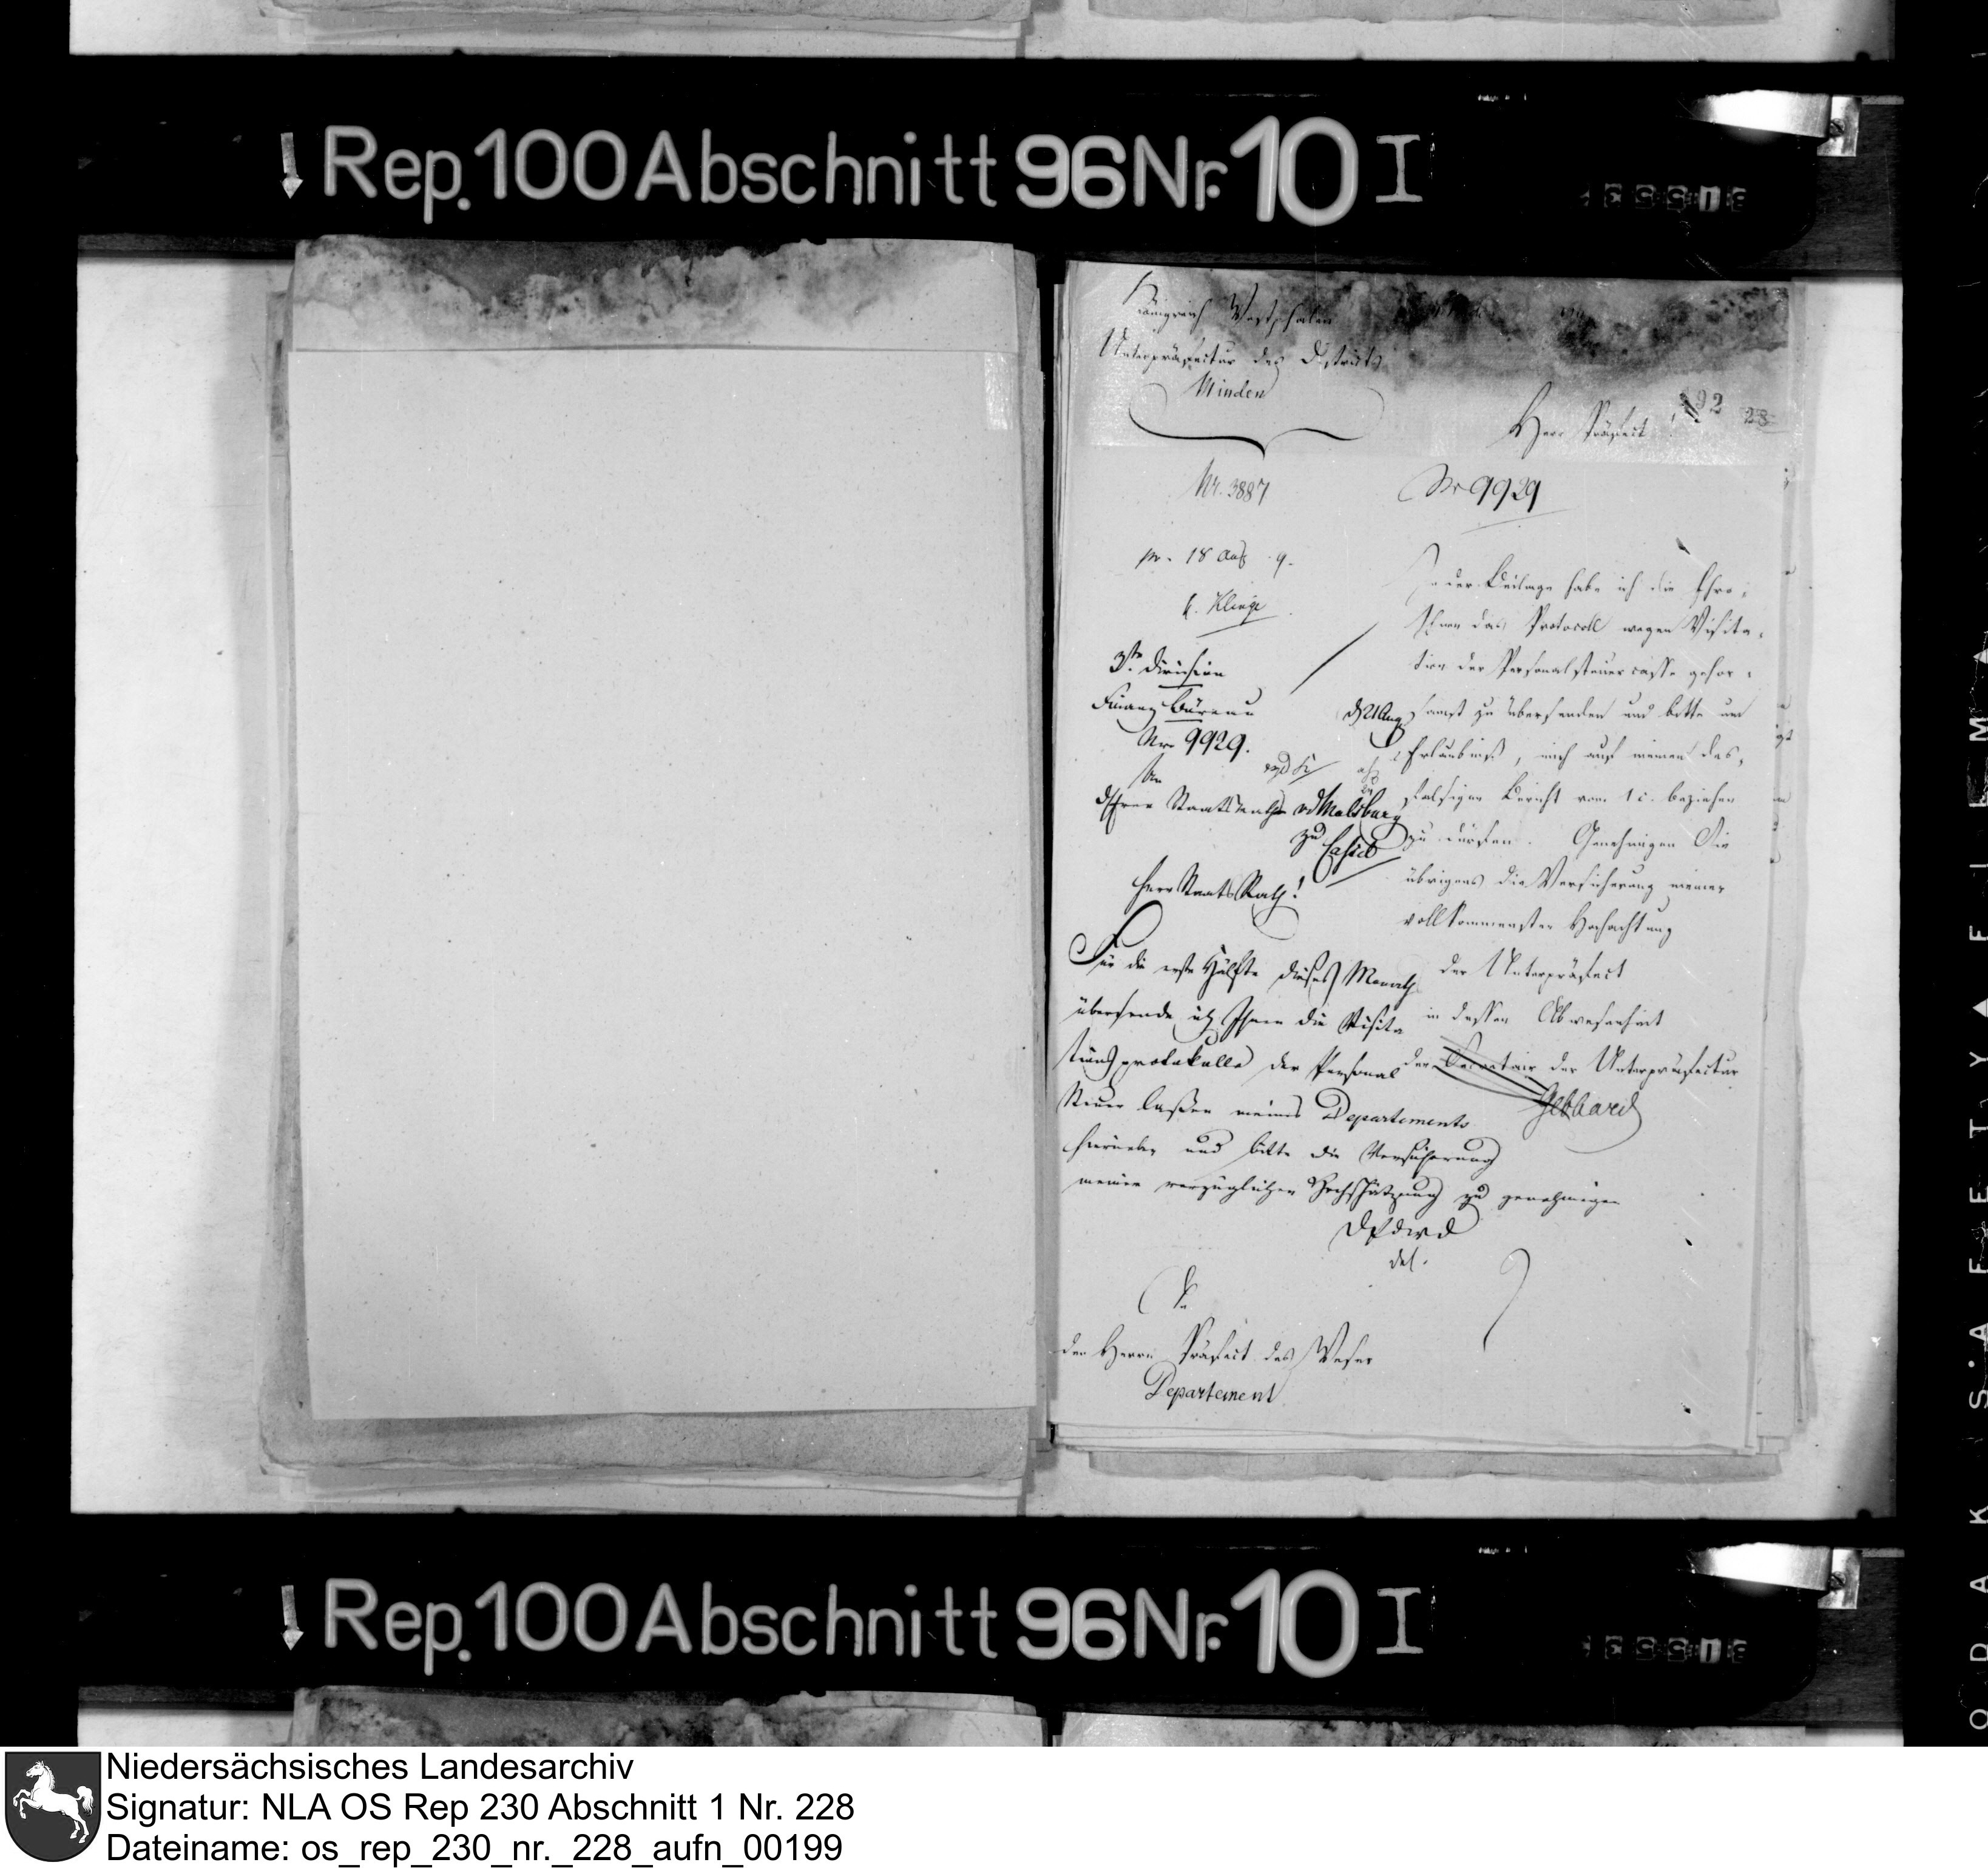 Rep. 100 Abschnitt 96 Nr. 10 I
Königreich Westphalen
Unterpräfectur des Districts
Minden
Herr Präfect!
292
28
Nr. 3887
Nr 9929
pr. 18 Aug 9.
Klinge
In der Beilage habe ich die Ehre,
Ihnen das Protocoll wegen Visita-
tion der Personalsteuercasse gehor-
samst zu übersenden und bitte um
Erlaubniß, mich auf meinen des-
falsigen Bericht vom 1 c. beziehen
zu dürfen. Genehmigen Sie
übrigens die Versicherung meiner
vollkommensten Hochachtung
der Unterpräfect
in dessen Abwesenheit
der Secretair der Unterpräfectur
Gebhard
3te Division
Finanz Büreau
Nro 9929.
d 21 Aug
An
d Herrn Staatsrath vd Malsburg
zu Cassel
Herr Staats Rath!
Für die erste Hälfte dieses Monats
übersende ich Ihnen die Visita
tions protokolle der Personal
Steuer Cassen meines Departements
hierneben und bitte die Versicherung
meiner vorzüglichen Hochschätzung zu genehmigen
D P d W D
An
den Herrn Präfect des Weser
Departement
Rep. 100 Abschnitt 96 Nr. 10 I
KODAK SAFETY FILM
Niedersächsisches Landesarchiv
Signatur: NLA OS Rep 230 Abschnitt 1 Nr. 228
Dateiname: os_rep_230_nr._228_aufn_00199